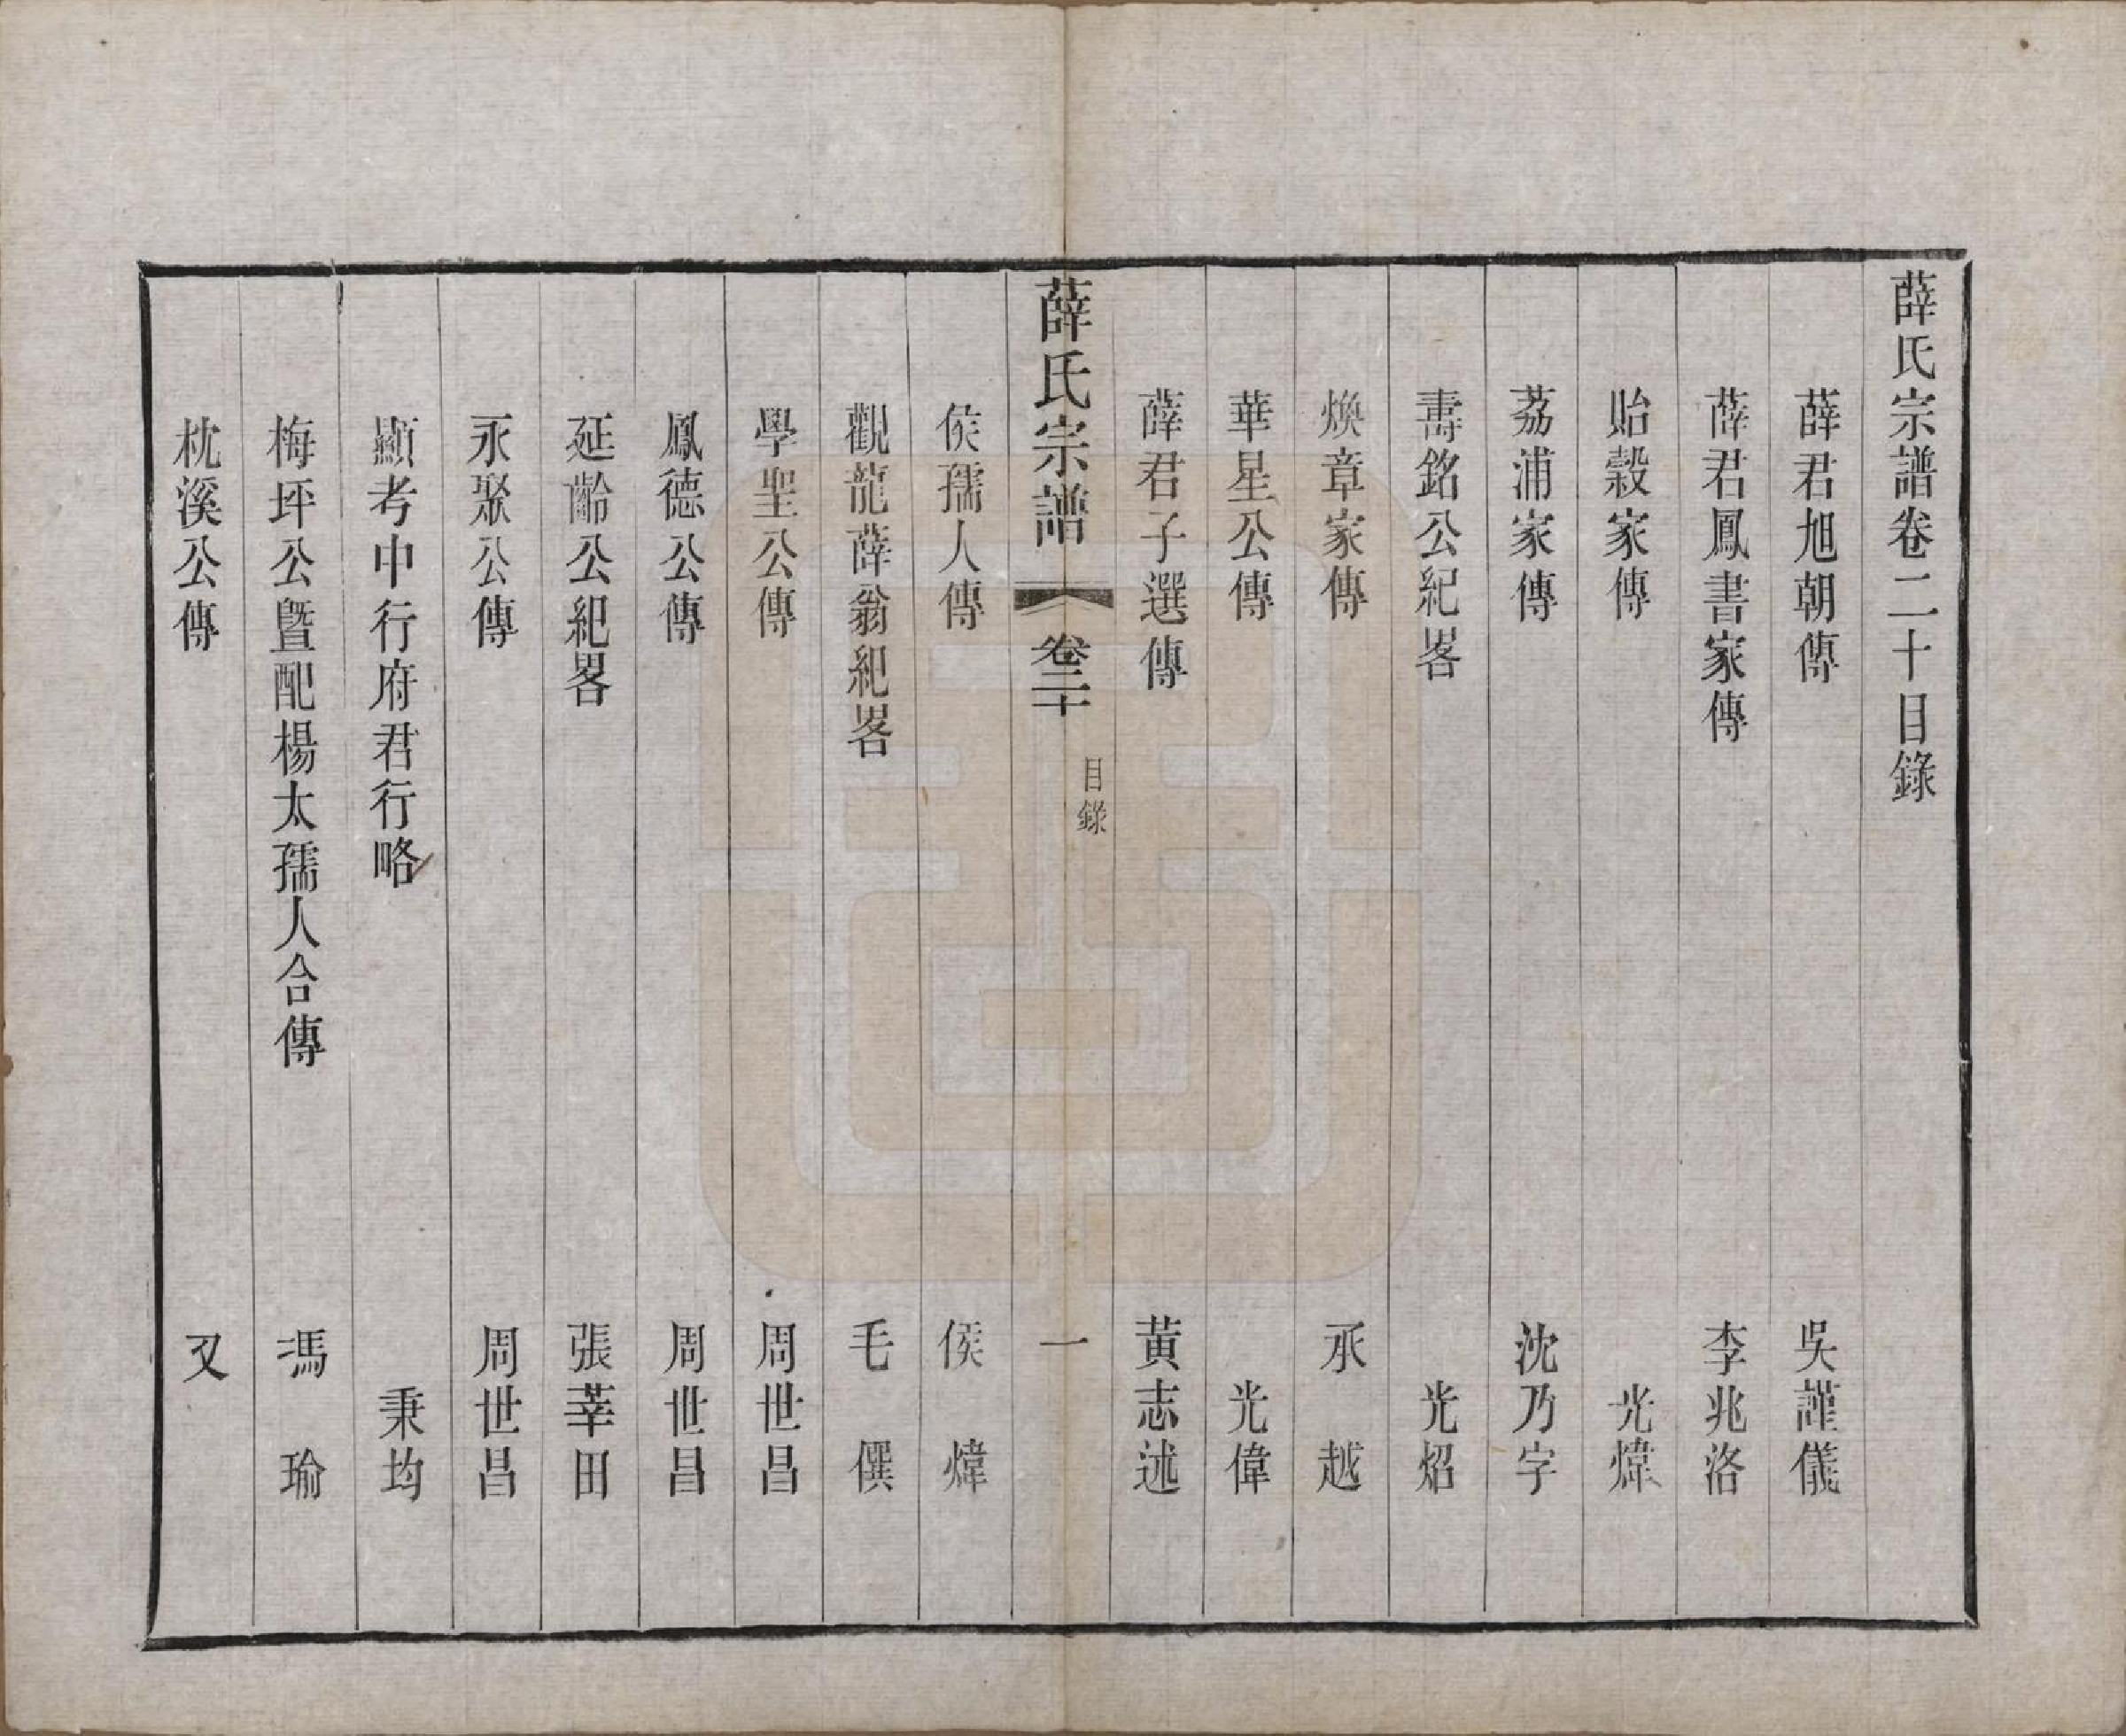 薛氏宗譜卷二十目錄
薛君旭朝傳 吳謹儀
薛君鳳書家傳 李兆洛
貽穀家傳 光煒
荔浦家傳 沈乃字
壽銘公紀畧 光炤
煥章家傳 承越
華星公傳 光偉
薛君子選傳 黃志述
薛氏宗譜 卷二十 目錄 一
侯孺人傳 侯煒
觀龍薛翁紀畧 毛僎
學聖公傳 周世昌
鳳德公傳 周世昌
延齡公紀畧 張莘田
永聚公傳 周世昌
顯考中行府君行略 秉均
梅坪公暨配楊太孺人合傳 馮瑜
枕溪公傳 又